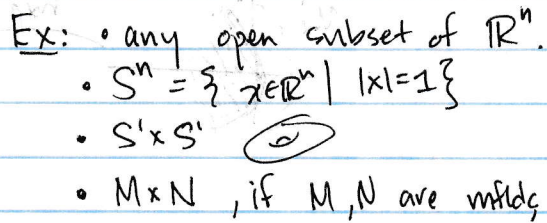 Ex: • any open subset of ℝⁿ.
• Sⁿ = { x∈ℝⁿ | |x|=1 }
• S¹×S¹
• M×N , if M,N are mflds